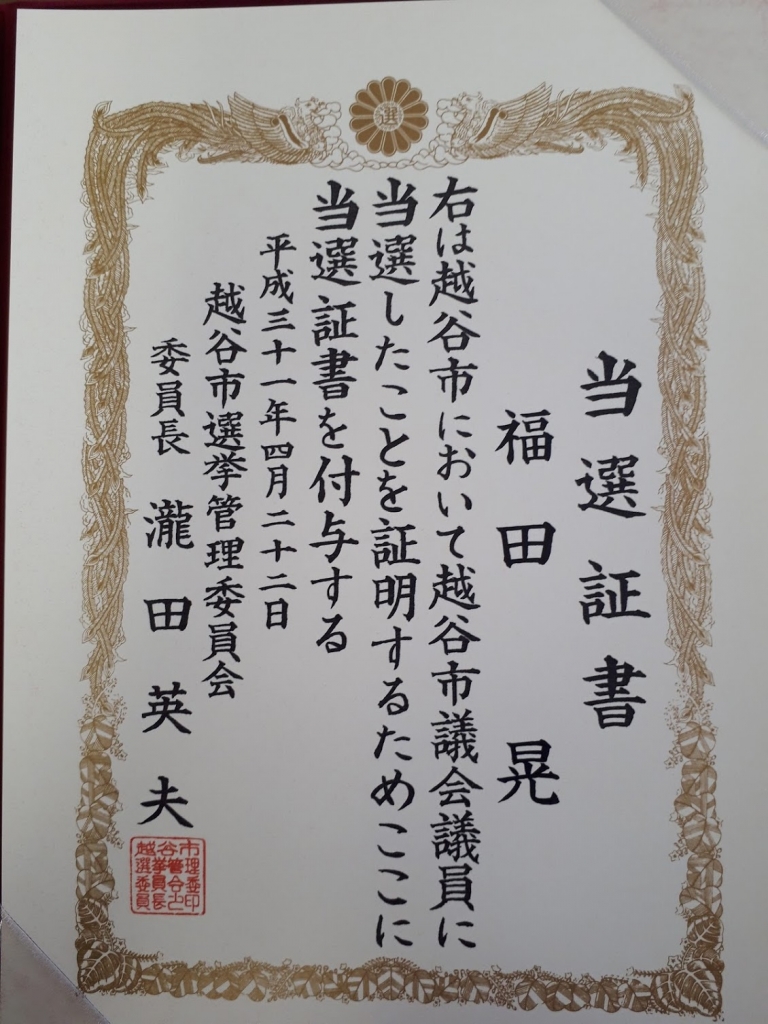 選
当選証書
福田晃
右は越谷市において越谷市議会議員に
当選したことを証明するためここに
当選証書を付与する
平成三十一年四月二十二日
越谷市選挙管理委員会
委員長 瀧田英夫
市理委印
谷管会之
挙員長
越選委員